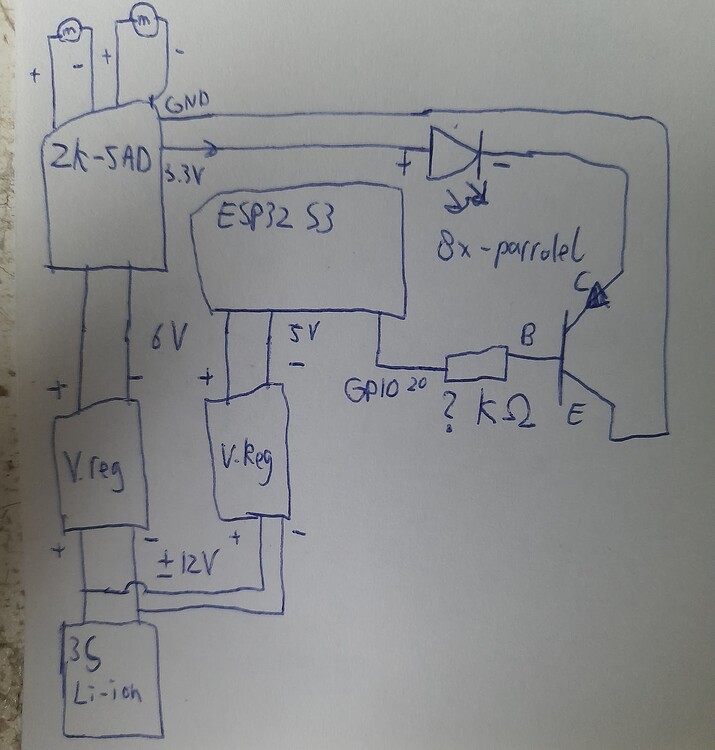 m
m
+
-
+
-
GND
ZK-5AD
3.3V
+
-
ESP32 S3
8x-parrolel
C
6V
5V
B
+
-
+
-
GPIO 20
? KΩ
E
V.reg
V.Reg
+
-
± 12V
+
-
3S
Li-ion